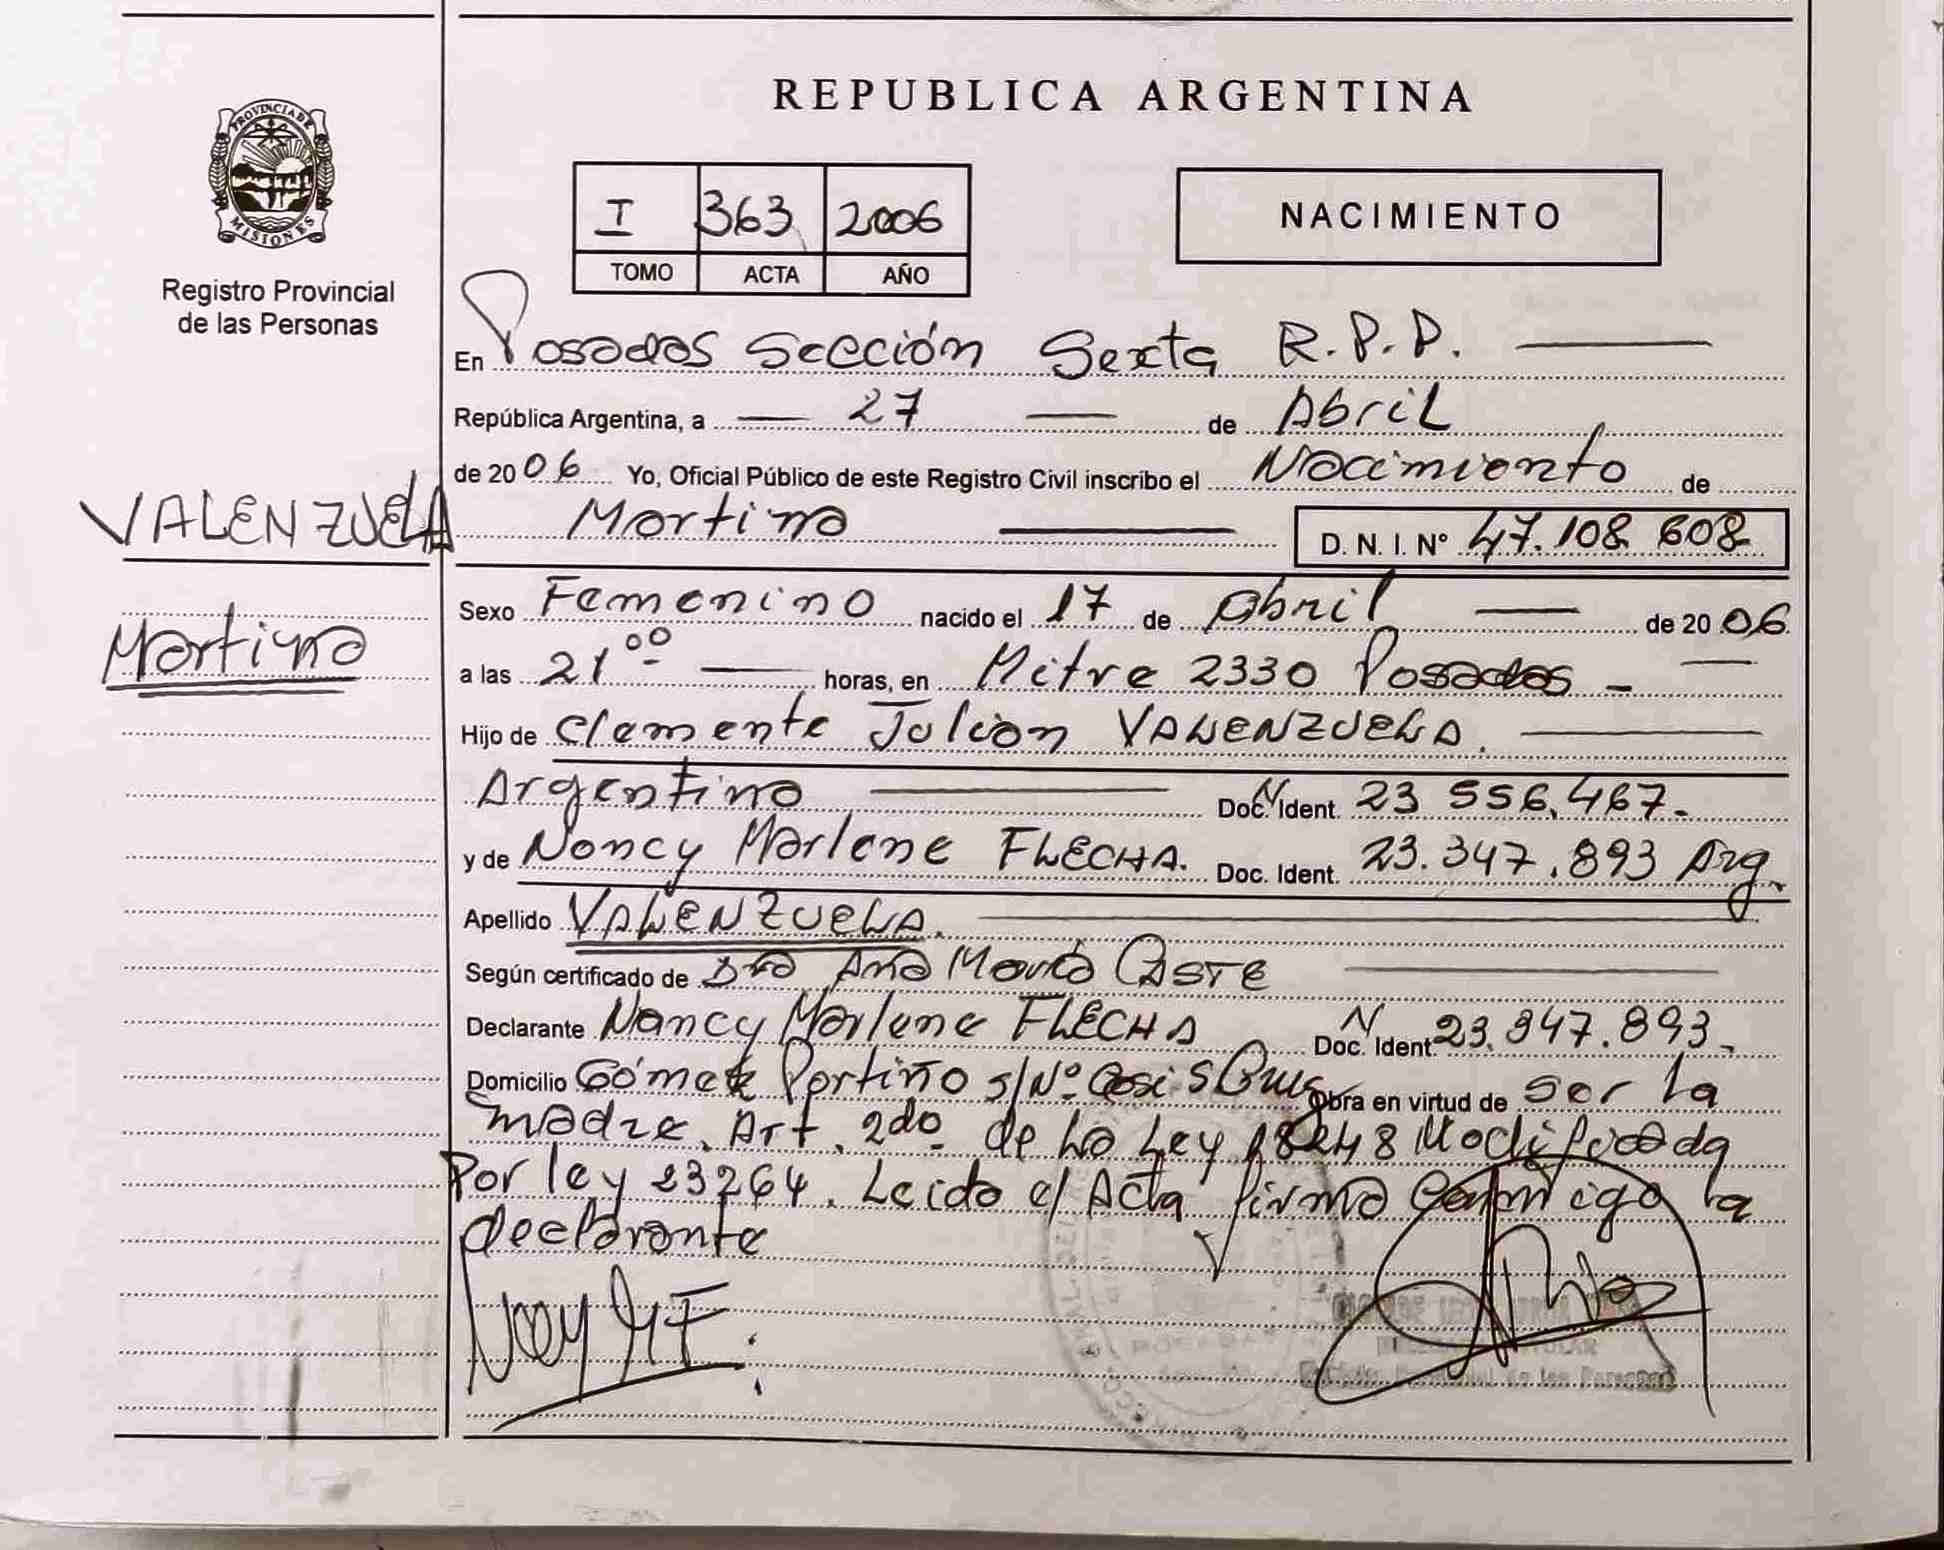 REPUBLICA ARGENTINA
PROVINCIA DE
MISIONES
Registro Provincial
de las Personas
I 363 2006
TOMO ACTA AÑO
NACIMIENTO
En Posadas Sección Sexta R.P.P.
República Argentina, a 27 de Abril
de 2006 Yo, Oficial Público de este Registro Civil inscribo el Nacimiento de
VALENZUELA
Martina D. N. I. N° 47.108 608
Sexo Femenino nacido el 17 de abril de 2006
Martina
a las 21 00 horas, en Mitre 2330 Posadas -
Hijo de Clemente Julian VALENZUELA.
Argentino Doc. N Ident. 23 556.467.
y de Nancy Marlene FLECHA. Doc. Ident. 23.347.893 Arg.
Apellido VALENZUELA.
Según certificado de Dra Ana María CASTE
Declarante Nancy Marlene FLECHA N Doc. Ident 23.347.893.
Domicilio Gómez Portiño s/Nº Obra en virtud de ser la
madre. Art. 2do de La Ley 18248 Modificada
Por ley 23264. Leido el Acta firma conmigo la
declarante
POSADAS
TITULAR
de las Personas